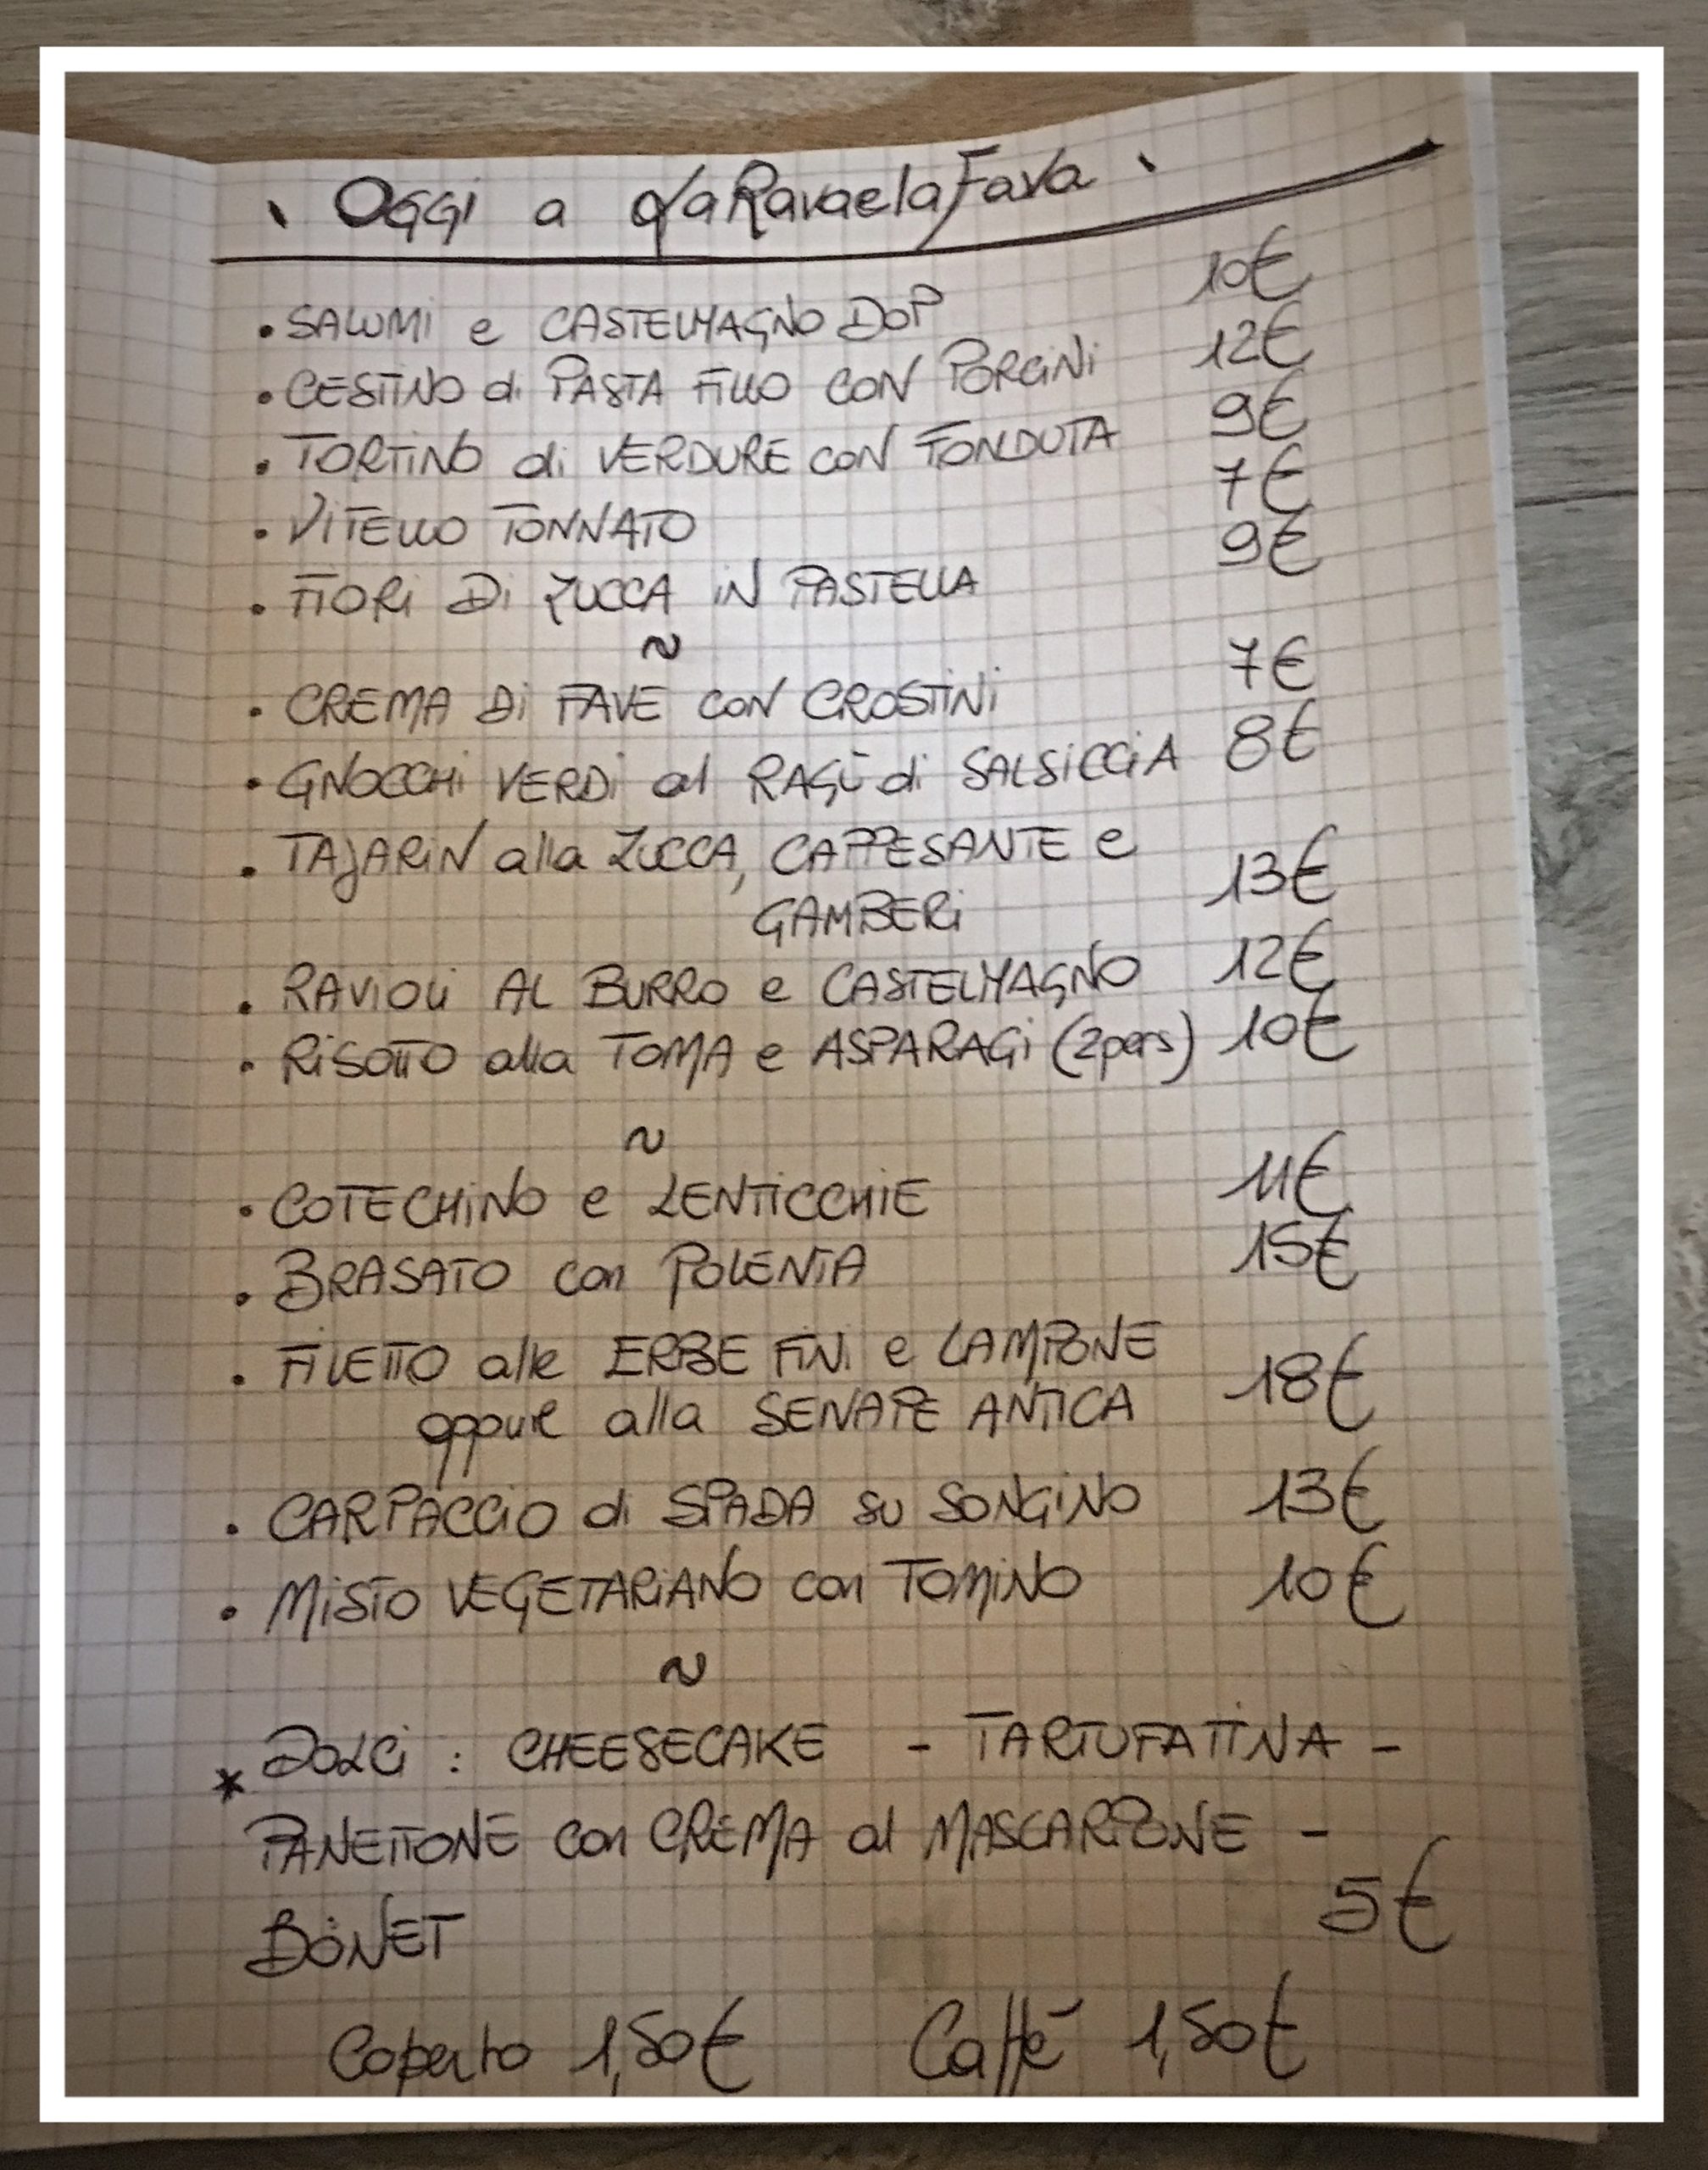 Oggi a LaRavaelaFava
• SALUMI e CASTELMAGNO DOP 10€
• CESTINO di PASTA FILLO CON PORCINI 12€
• TORTINO di VERDURE CON FONDUTA 9€
• VITELLO TONNATO 7€
• FIORI Di ZUCCA iN PASTELLA 9€
~
• CREMA Di FAVE CON CROSTiNi 7€
• GNOCCHi VERDi al RAGÙ di SALSiCCiA 8€
• TAJARiN alla ZUCCA, CAPPESANTE e
GAMBERi 13€
• RAVIOLi AL BURRO e CASTELMAGNO 12€
• RiSOTTO alla TOMA e ASPARAGi (2pers) 10€
~
• COTECHiNO e LENTICCHIE 11€
• BRASATO con POLENTA 15€
• FiLETTO alle ERBE FiNi e LAMPONE
oppure alla SENAPE ANTICA 18€
• CARPACCiO di SPADA SU SONGiNO 13€
• MiSTO VEGETARiANO con TOMiNO 10€
~
* DOLCi : CHEESECAKE - TARTUFATiNA -
PANETTONE con CREMA al MASCARPONE -
BÖNET 5€
Coperto 1,50€ Caffè 1,50€